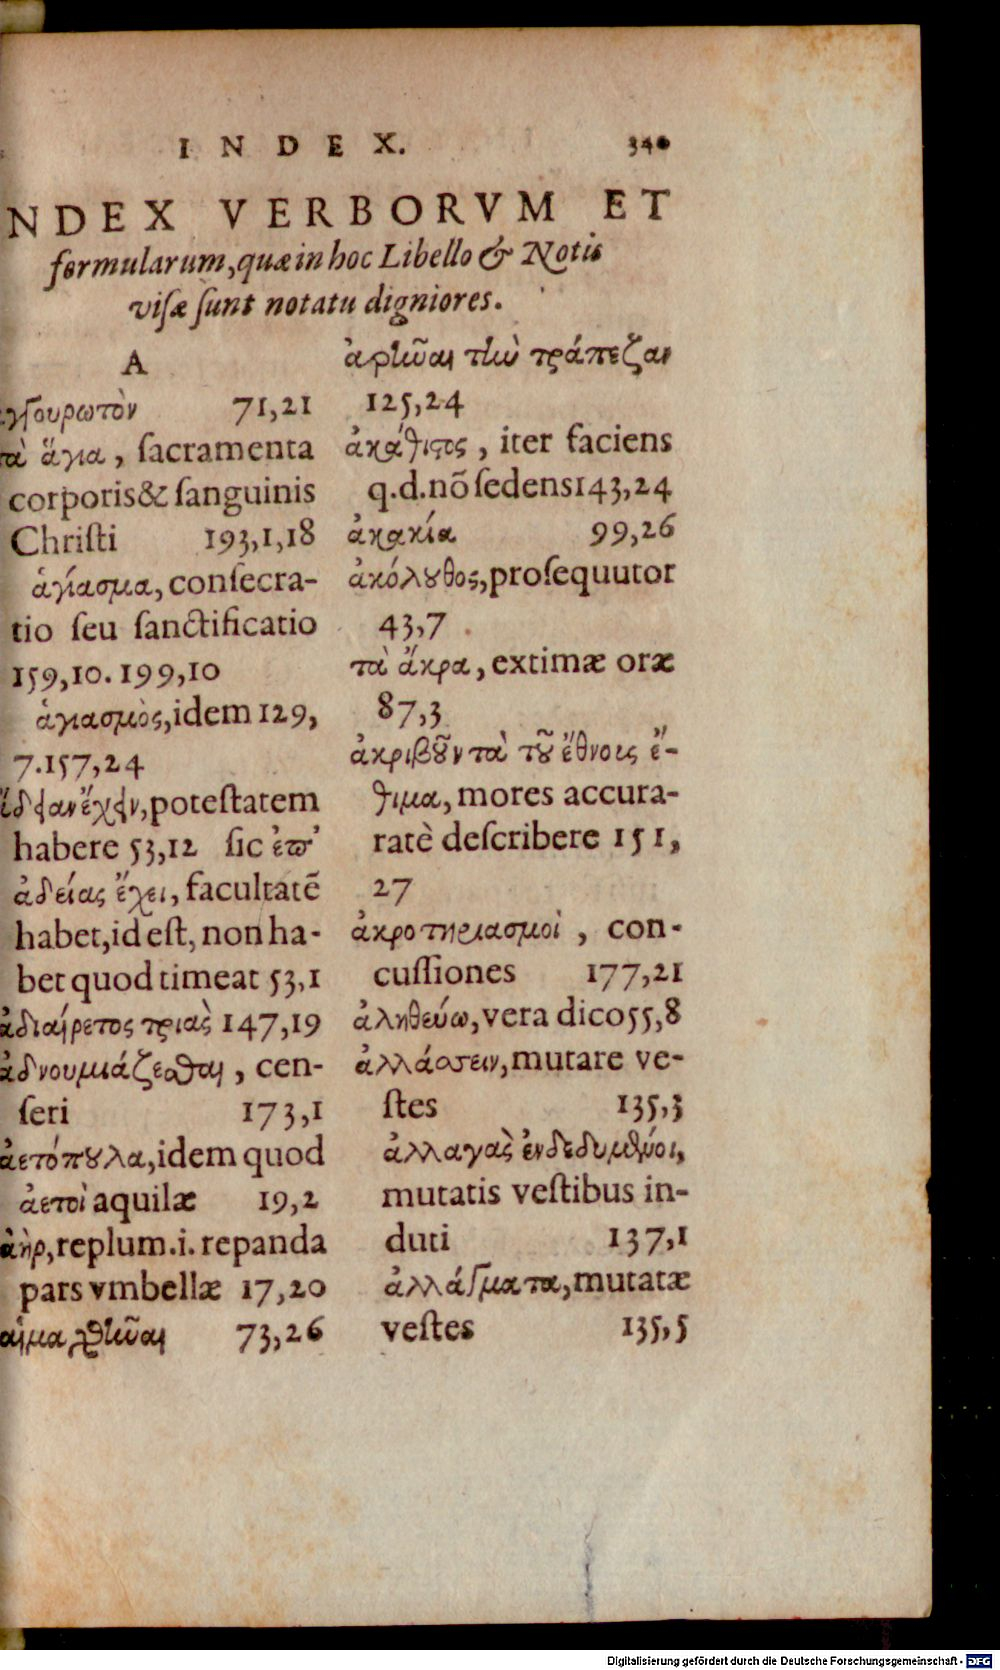 INDEX. 340
NDEX VERBORVM ET
formularum, quæ in hoc Libello & Notis
visæ ſunt notatu digniores.
A
71,21
τὰ ἅγια, ſacramenta
corporis & ſanguinis
Chriſti 193,1,18
ἁγίασμα, conſecra-
tio ſeu ſanctificatio
159,10. 199,10
ἁγιασμὸς, idem 129,
7.157,24
ἔχειν, poteſtatem
habere 53,12 ſic ἐπ'
ἀδείας ἔχει, facultatē
habet, id eſt, non ha-
bet quod timeat 53,1
ἀδιαίρετος τριὰς 147,19
ἀδνουμιάζεσθαι, cen-
ſeri 173,1
ἀετόπουλα, idem quod
ἀετοὶ aquilæ 19,2
ἀὴρ, replum.i. repanda
pars vmbellæ 17,20
αἷμα χθῆναι 73,26
ἀρθῆναι τὴν τράπεζαν
125,24
ἀκάθιστος, iter faciens
q.d. nō ſedens 143,24
ἀκακία 99,26
ἀκόλουθος, proſequutor
43,7
τὰ ἄκρα, extimæ oræ
87,3
ἀκριβοῦν τὰ τοῦ ἔθνοις ἔ-
θιμα, mores accura-
ratè deſcribere 151,
27
ἀκροτηριασμοὶ, con-
cuſſiones 177,21
ἀληθεύω, vera dico 55,8
ἀλλάσσειν, mutare ve-
ſtes 135,3
ἀλλαγὰς ἐνδεδυμένοι,
mutatis veſtibus in-
duti 137,1
ἀλλάγματα, mutatæ
veſtes 135,5
Digitalisierung gefördert durch die Deutsche Forschungsgemeinschaft - DFG